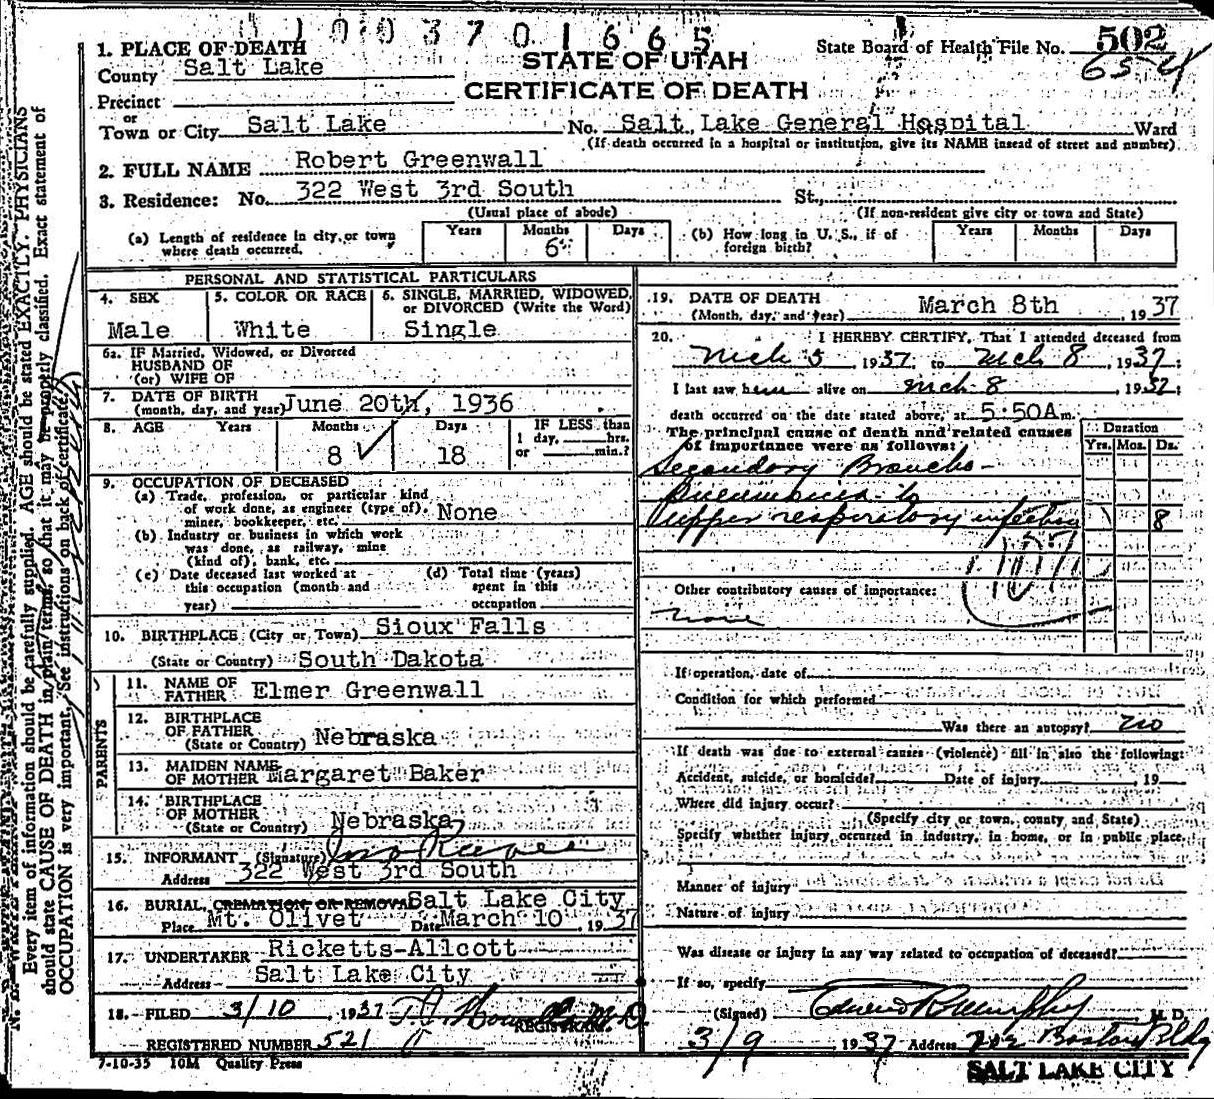 1 0 0 3 7 0 1 6 6 5
1. PLACE OF DEATH
County Salt Lake
STATE OF UTAH
State Board of Health File No. 502
CERTIFICATE OF DEATH
65-4
Precinct
or
Town or City Salt Lake No. Salt Lake General Hospital Ward
(If death occurred in a hospital or institution, give its NAME insead of street and number)
2. FULL NAME Robert Greenwall
3. Residence: No. 322 West 3rd South St.,
(Usual place of abode) (If non-resident give city or town and State)
(a) Length of residence in city or town where death occurred. Years Months 6 Days
(b) How long in U. S., if of foreign birth? Years Months Days
PERSONAL AND STATISTICAL PARTICULARS
4. SEX Male
5. COLOR OR RACE White
6. SINGLE, MARRIED, WIDOWED, or DIVORCED (Write the Word) Single
6a. IF Married, Widowed, or Divorced
HUSBAND OF
(or) WIFE OF
7. DATE OF BIRTH
(month, day, and year) June 20th, 1936
8. AGE Years Months 8 Days 18 IF LESS than
1 day, hrs.
or min.?
9. OCCUPATION OF DECEASED
(a) Trade, profession, or particular kind
of work done, as engineer (type of),
miner, bookkeeper, etc. None
(b) Industry or business in which work
was done, as railway, mine
(kind of), bank, etc.
(c) Date deceased last worked at
this occupation (month and
year)
(d) Total time (years)
spent in this
occupation
10. BIRTHPLACE (City or Town) Sioux Falls
(State or Country) South Dakota
PARENTS
11. NAME OF FATHER Elmer Greenwall
12. BIRTHPLACE OF FATHER
(State or Country) Nebraska
13. MAIDEN NAME OF MOTHER Margaret Baker
14. BIRTHPLACE OF MOTHER
(State or Country) Nebraska
15. INFORMANT (Signature)
Address 322 West 3rd South
16. BURIAL, CREMATION OR REMOVAL Salt Lake City
Place Mt. Olivet Date March 10, 1937
17. UNDERTAKER Ricketts-Allcott
Address Salt Lake City
18. FILED 3/10, 1937
REGISTRAR.
REGISTERED NUMBER 521
7-10-35 10M Quality Press
19. DATE OF DEATH
(Month, day, and year) March 8th 1937
20. I HEREBY CERTIFY, That I attended deceased from
Mch 5, 1937, to Mch 8, 1937;
I last saw him alive on Mch 8, 1937;
death occurred on the date stated above, at 5:50A m.
The principal cause of death and related causes
of importance were as follows:
Duration
Yrs. Mos. Ds.
Secondary Broncho-
Pneumonia to
upper respiratory infection 8
107
Other contributory causes of importance:
none
If operation, date of
Condition for which performed
Was there an autopsy? no
If death was due to external causes (violence) fill in also the following:
Accident, suicide, or homicide? Date of injury, 19
Where did injury occur?
(Specify city or town, county, and State)
Specify whether injury occurred in industry, in home, or in public place,
Manner of injury
Nature of injury
Was disease or injury in any way related to occupation of deceased?
If so, specify
(Signed) Edward R. Murphy, M. D.
3/9 1937 Address 702 Boston Bldg
SALT LAKE CITY
Every item of information should be carefully supplied. AGE should be stated EXACTLY. PHYSICIANS
should state CAUSE OF DEATH in plain terms, so that it may be properly classified. Exact statement of
OCCUPATION is very important. See instructions on back of certificate.